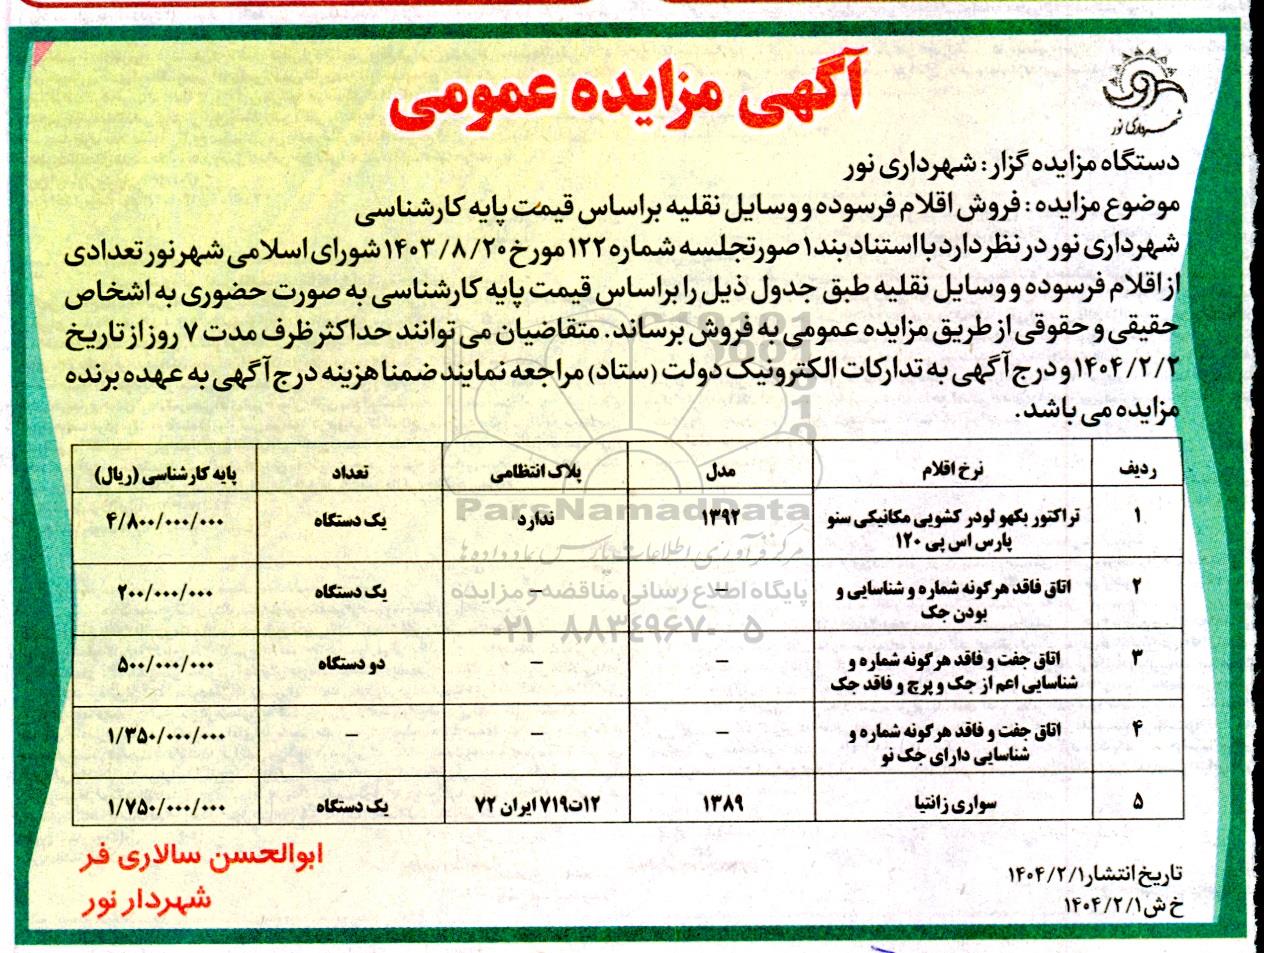 آگهی مزایده عمومی
شهرداری نور
دستگاه مزایده گزار : شهرداری نور
موضوع مزایده : فروش اقلام فرسوده و وسایل نقلیه براساس قیمت پایه کارشناسی
شهرداری نور در نظر دارد با استناد بند۱ صورتجلسه شماره ۱۲۲ مورخ ۱۴۰۳/۸/۲۰ شورای اسلامی شهر نور تعدادی
از اقلام فرسوده و وسایل نقلیه طبق جدول ذیل را براساس قیمت پایه کارشناسی به صورت حضوری به اشخاص
حقیقی و حقوقی از طریق مزایده عمومی به فروش برساند. متقاضیان می توانند حداکثر ظرف مدت ۷ روز از تاریخ
۱۴۰۴/۲/۲ و درج آگهی به تدارکات الکترونیک دولت (ستاد) مراجعه نمایند ضمنا هزینه درج آگهی به عهده برنده
مزایده می باشد.
ردیف نرخ اقلام مدل پلاک انتظامی تعداد پایه کارشناسی (ریال)
۱ تراکتور بکهو لودر کشویی مکانیکی سنو ۱۳۹۲ ندارد یک دستگاه ۴/۸۰۰/۰۰۰/۰۰۰
پارس اس پی ۱۲۰
۲ اتاق فاقد هرگونه شماره و شناسایی و – – یک دستگاه ۲۰۰/۰۰۰/۰۰۰
بودن جک
۳ اتاق جفت و فاقد هرگونه شماره و – – دو دستگاه ۵۰۰/۰۰۰/۰۰۰
شناسایی اعم از جک و پرچ و فاقد جک
۴ اتاق جفت و فاقد هرگونه شماره و – – – ۱/۳۵۰/۰۰۰/۰۰۰
شناسایی دارای جک نو
۵ سواری زانتیا ۱۳۸۹ ۱۲ت۷۱۹ ایران ۷۲ یک دستگاه ۱/۷۵۰/۰۰۰/۰۰۰
ParsNamadData
مرکز فرآوری اطلاعات پارس نماد داده ها
پایگاه اطلاع رسانی مناقصه و مزایده
۰۲۱-۸۸۳۴۹۶۷۰-۵
ابوالحسن سالاری فر
شهردار نور
تاریخ انتشار ۱۴۰۴/۲/۱
خ ش ۱۴۰۴/۲/۱